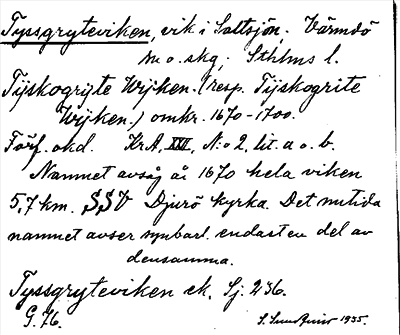 Tyssgryteviken, vik i Saltsjön. Värmdö
m o. skg, Sthlms l.
Tijskogryte Wijken (resp. Tijskogrite
Wijken) omkr. 1670-1700.
Förf. okd. KrA, XVI, N:o 2, lit. a o. b.
Namnet avsåg år 1670 hela viken
5,7 km. SSV Djurö kyrka. Det nutida
namnet avser synbarl. endast en del av
densamma.
Tyssgryteviken ek. Sj. 236.
G. 76. 1935.